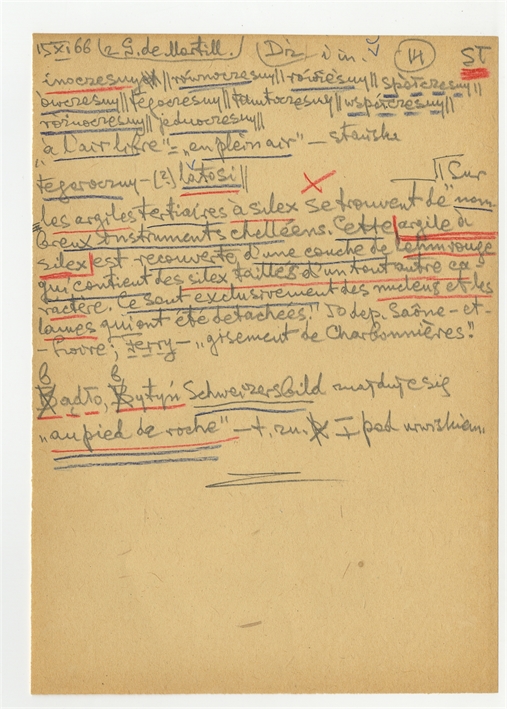 15 XI 66 (z G. de Mortill.) (Diz i in. 14 ST
inoczesny || równoczesny || rówieśny || spółczesny ||
ówczesny || tegoczesny || tamtoczesny || współczesny ||
różnoczesny || jednoczesny ||
"à l'air libre" = "en plein air" —
tegoroczny – (?) latosi ||
"Sur
les argiles tertiaires à silex se trouvent de nom-
breux instruments chelléens. Cette argile à
silex est recouverte d'une couche de lehm rouge
qui contient des silex taillés d'un tout autre ca-
ractère. Ce sont exclusivement des nucleus et les
lames qui ont été détachées." To dep. Saône-et-
-Loire, Ferry – "gisement de Charbonnières."
b b
Bądto, Bytyń Schweizersbild znajduje się
"au pied de roche" – t. zn. I pod urwiskiem.